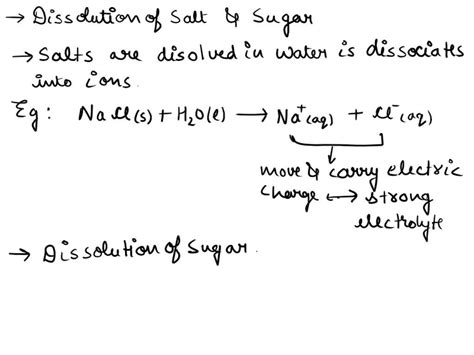 → Dissolution of Salt & Sugar
→ Salts are disolved in water is dissociates
into ions.
Eg: NaCl(s) + H₂O(l) ⟶ Na⁺(aq) + Cl⁻(aq)
move & carry electric
charge ⟷ strong
electrolyte
→ Dissolution of Sugar.